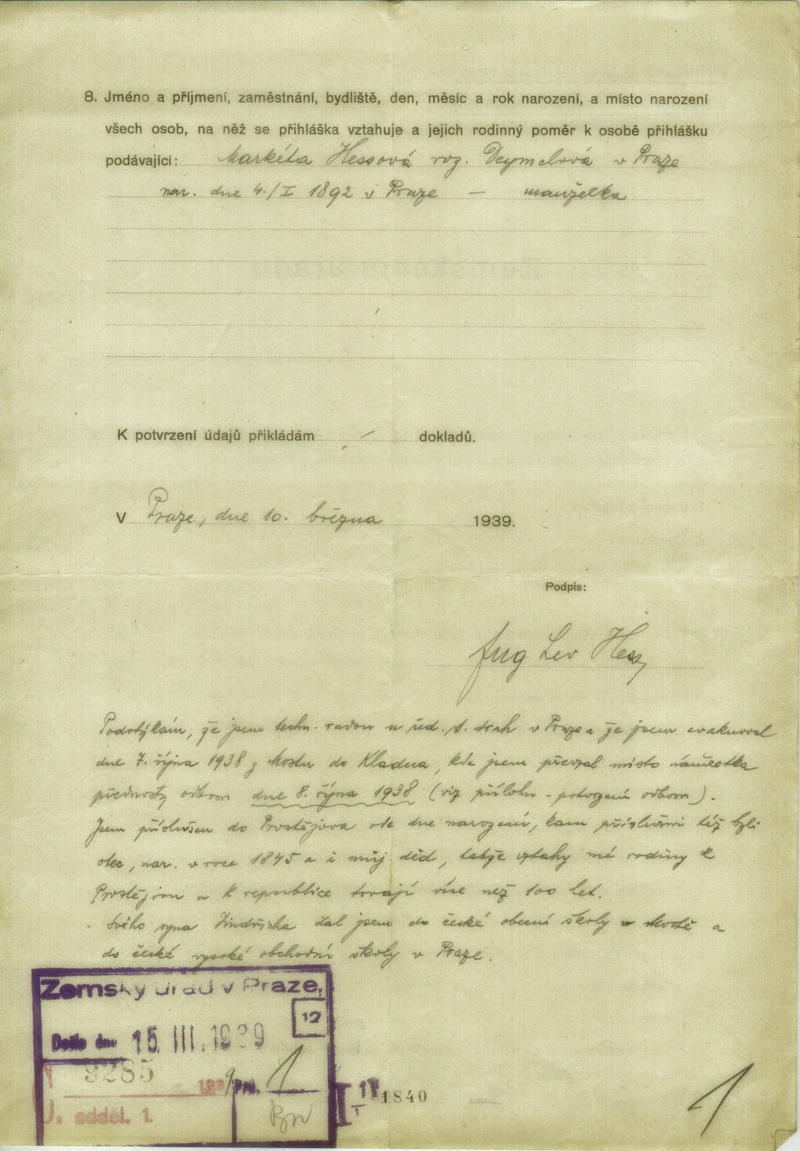 8. Jméno a příjmení, zaměstnání, bydliště, den, měsíc a rok narození, a místo narození
všech osob, na něž se přihláška vztahuje a jejich rodinný poměr k osobě přihlášku
podávající: Markéta Hessová roz. Deymelová v Praze
nar. dne 4./I 1892 v Praze – manželka
K potvrzení údajů přikládám – dokladů.
V Praze, dne 10. března 1939.
Podpis:
Ing Lev Hess
Podotýkám, že jsem techn. radou u řed. st. drah v Praze a že jsem evakuoval
dne 7. října 1938 z Mostu do Kladna, kde jsem převzal místo náměstka
přednosty odboru dne 8. října 1938 (viz přílohu - potvrzení odboru).
Jsem příslušen do Prostějova ode dne narození, kam příslušni též byli
otec, nar. v roce 1845 a i můj děd, takže vztahy mé rodiny k
Prostějovu a k republice trvají více než 100 let.
Svého syna Jindřicha dal jsem do české obecní školy v Mostě a
do české vysoké obchodní školy v Praze.
Zemský úřad v Praze,
12
Došlo dne 15. III. 1939
9285 1939 Příl. 1
odděl. 1.
1840
1